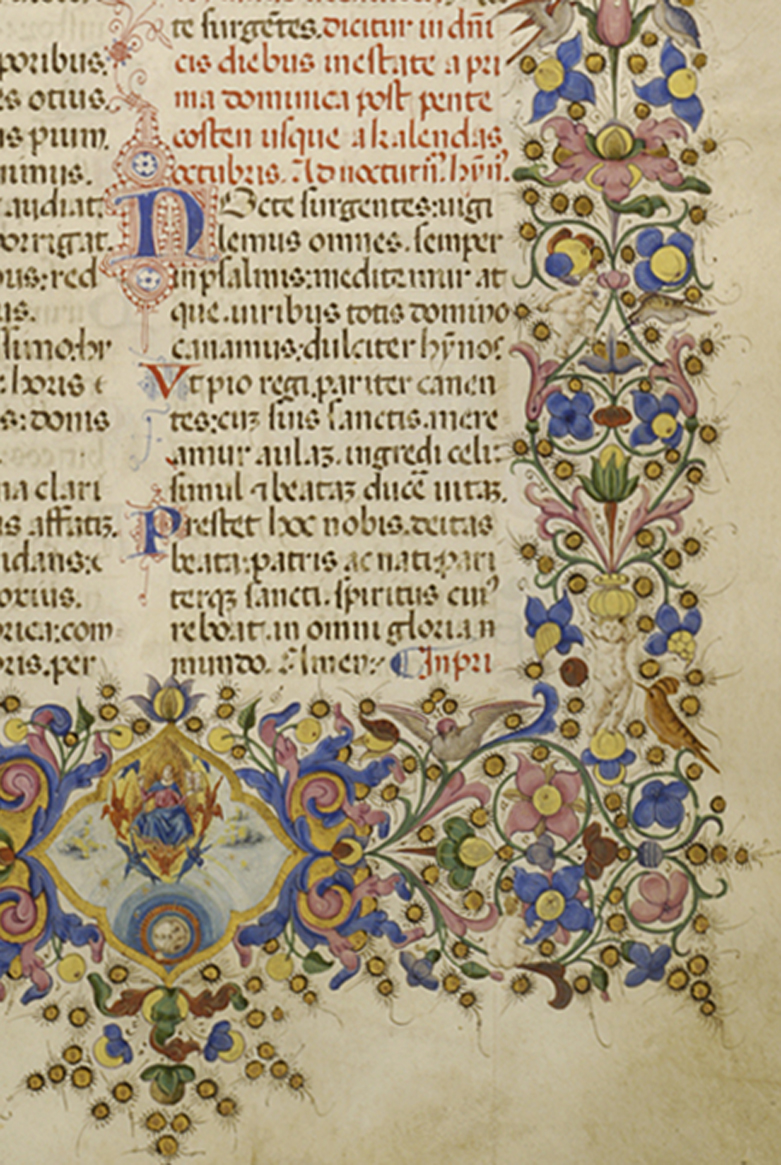 poribus.
s otius.
s pium.
nimus.
audiat:
porrigat.
us: red
us.
horis e
s: donis
na clari
s affatꝫ.
oxius.
rica: com
ris. per
te surgẽtes. dicitur in dñi
cis diebus in estate a pri
ma dominica post pente
costen usque a kalendas
octubris. Ad nocturn̄. hyn̄.
NOcte surgentes: uigi
lemus omnes. semper
in psalmis: meditemur at
que. uiribus totis domino
canamus: dulciter hȳnos
Vt pio regi. pariter canen
tes: cuꝫ suis sanctis. mere
amur aulaꝫ. ingredi celi:
simul ⁊ beataꝫ ducẽ uitaꝫ.
Prestet hoc nobis. deitas
beata: patris ac nati: pari
terqꝫ sancti. spiritus cui⁹
reboat. in omni gloria n
mundo. Amen: ¶ In pri